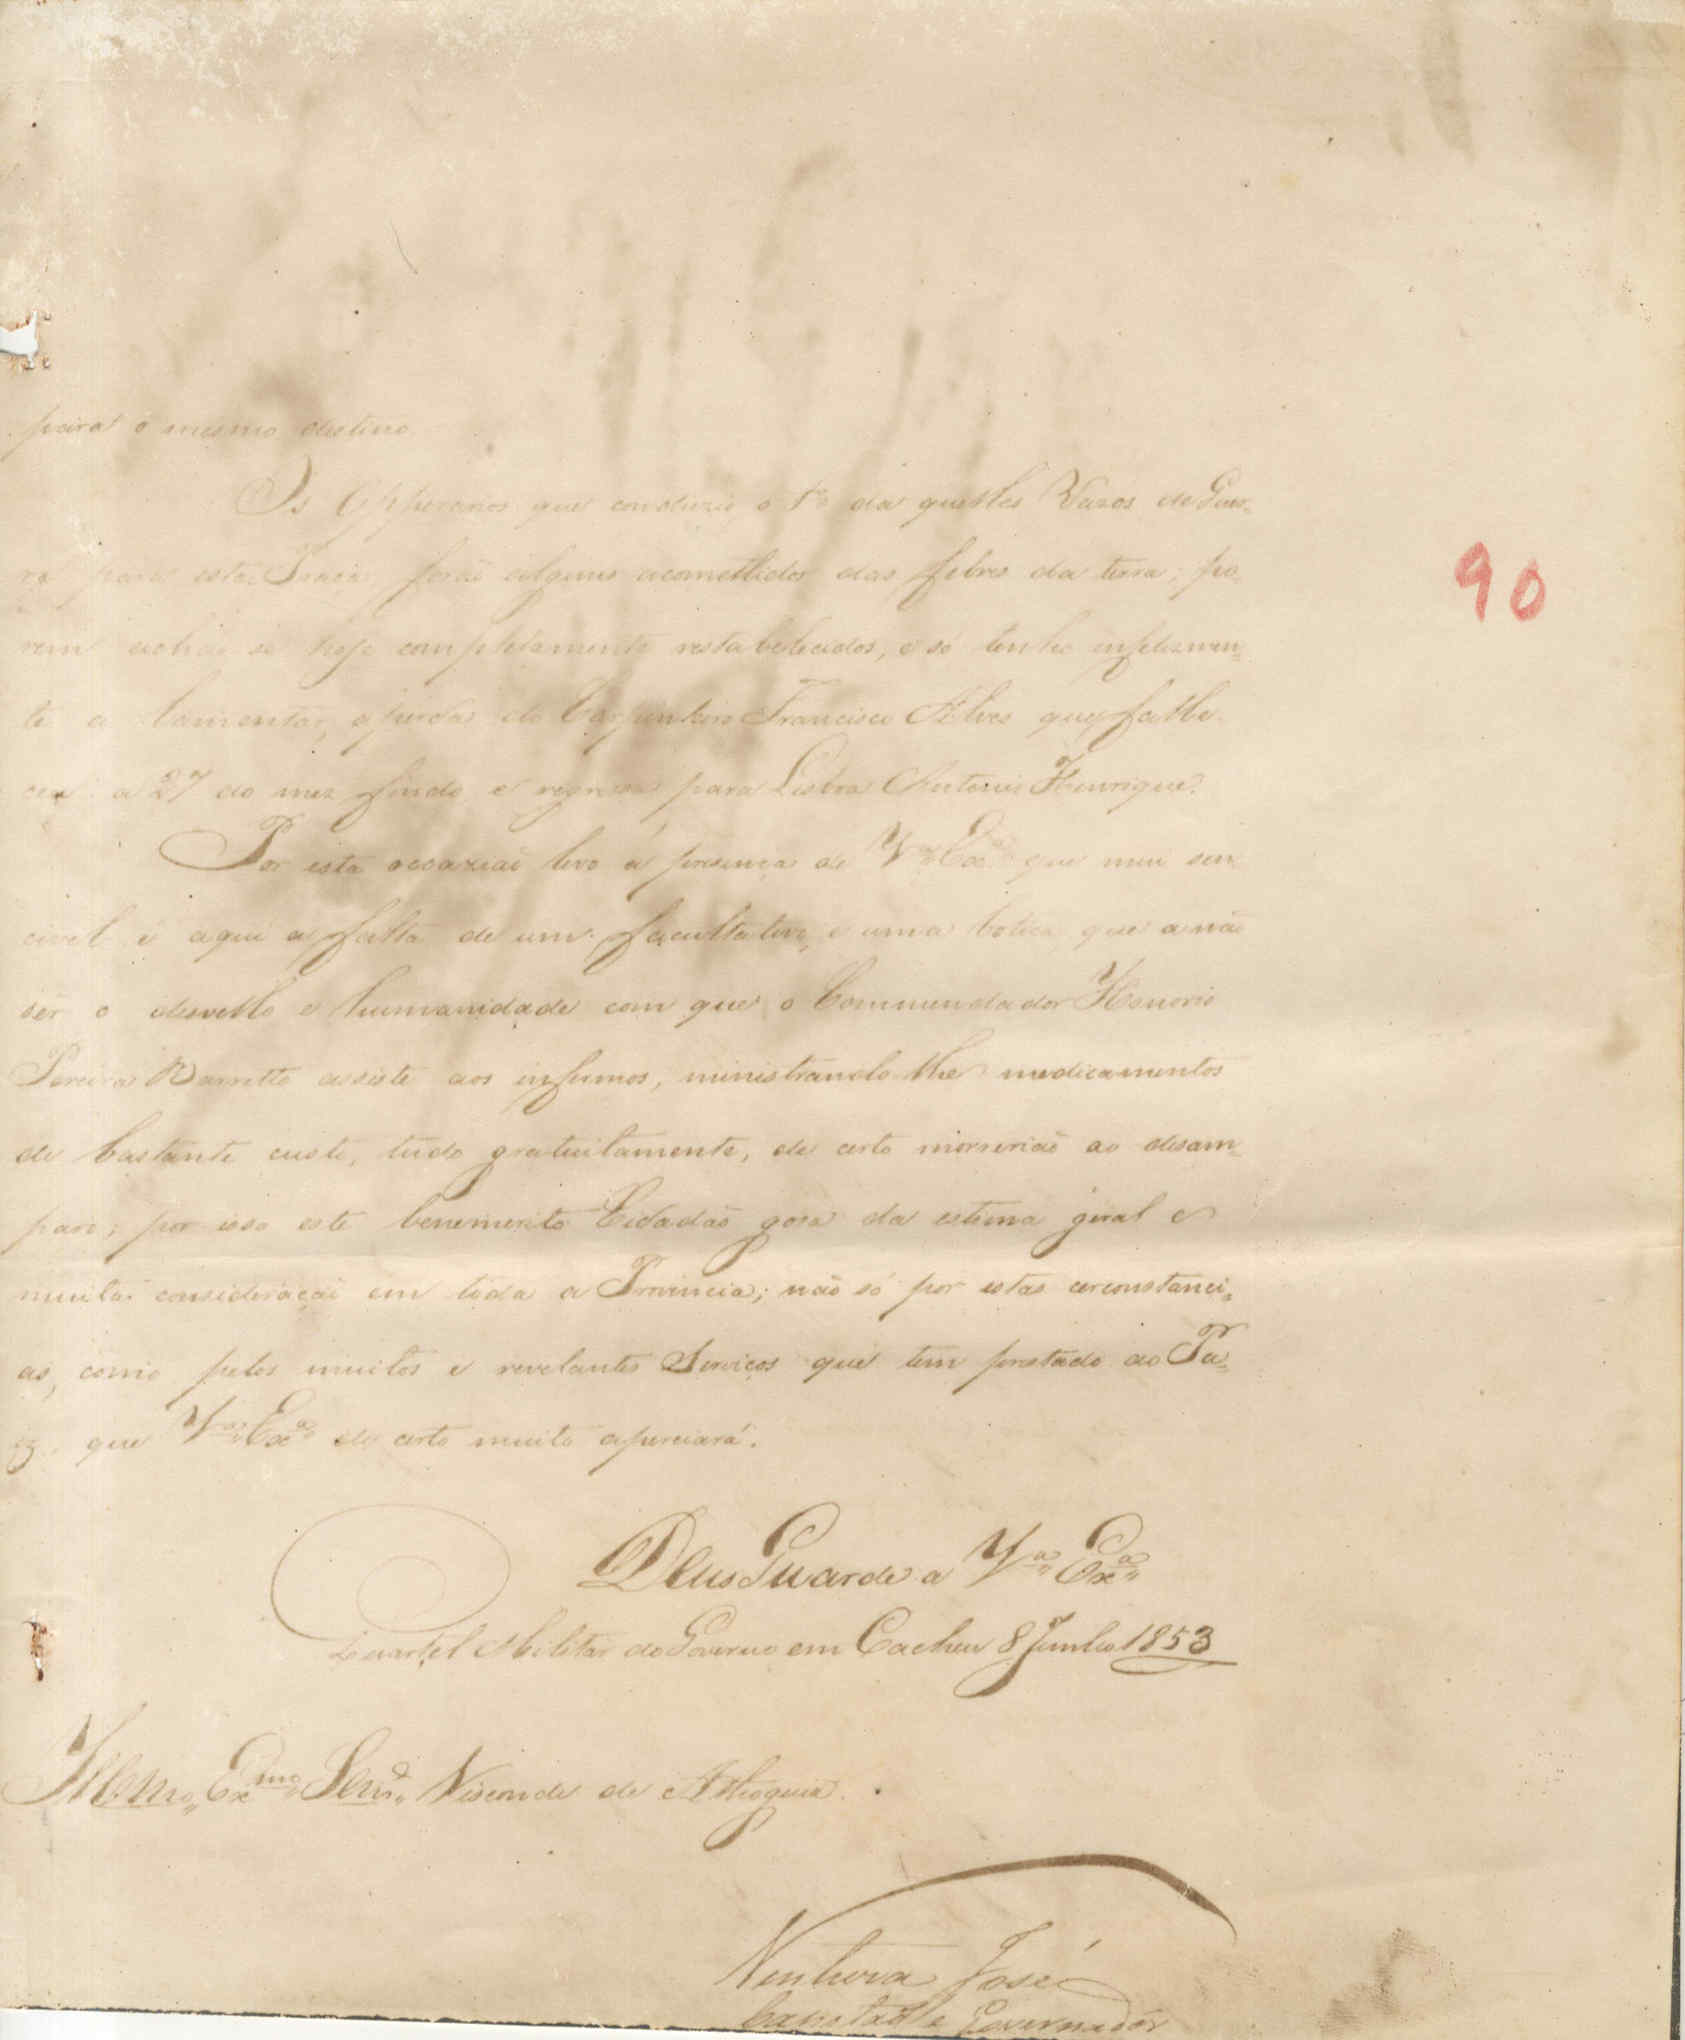 para o mesmo destino.
Os Opperarios que conduzio o 1º da quelles Vazos de Guer=
ra para esta Praça forão alguns acomettidos das febres da terra; po=
rem achão se hoje completamente restabelecidos, e só tenho infelizmen=
te a lamentar, a perda do Carpinteiro Francisco Alves que falle=
ceu a 27 do mez findo e regressa para Lisboa Antonio Henrique.
Por esta occazião levo á presença de Vª Exª que mui sen=
civel é aqui a falta de um facultativo, e uma botica, que a não
ser o desvello e humanidade com que o Commendador Honorio
Pereira Barretto assiste aos infermos, ministrando lhe medicamentos
de bastante custo, tudo gratuitamente, de certo morrerião ao desam=
paro; por isso este benemerito Cidadão gosa da estima geral e
muita consideração em toda a Provincia; não só por estas cerconstanci=
as, como pelos muitos e revelantes Serviços que tem prestado ao Pa=
iz, que Vª Exª de certo muito apreciará.
Deus Guarde a Vª Exª
Quartel Militar do Governo em Cacheu 8 Junho 1853
Illmo Exmo Senr Visconde de Athoguia.
90
Ventura José
Capitão e Governador